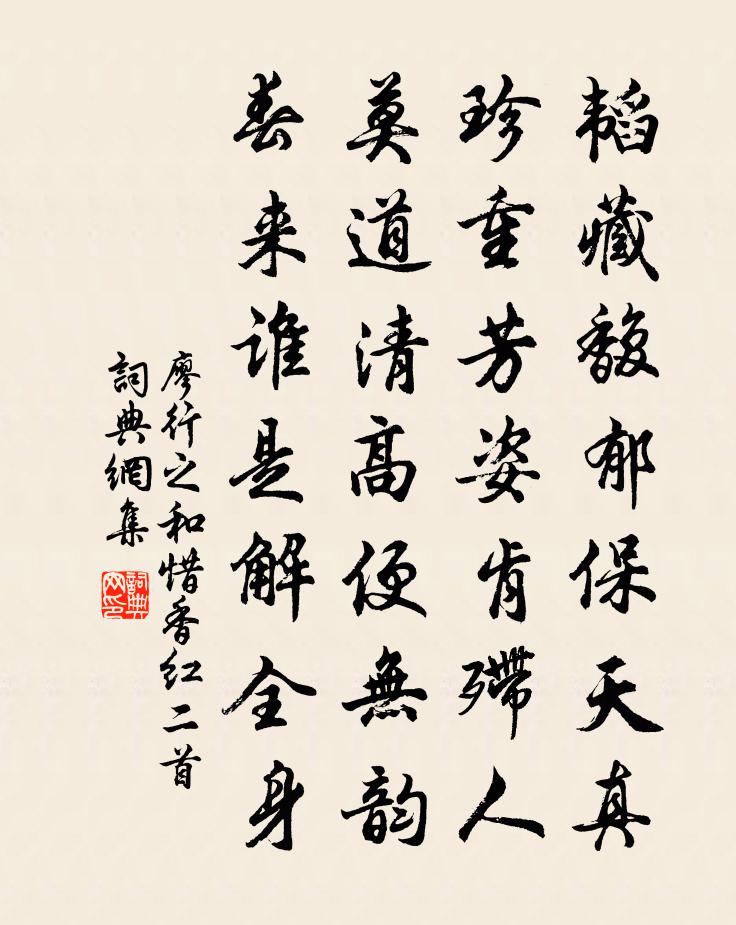 韬藏馥郁保天真
珍重芳姿肯殢人
莫道清高便無韵
春来谁是解全身
廖行之和惜香红二首
詞典網集
詞典网印